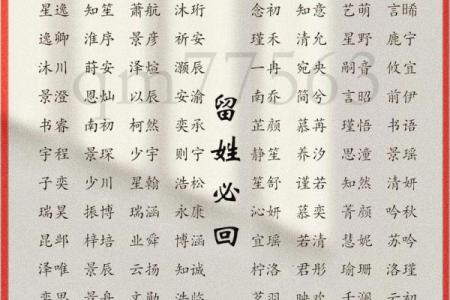 星逸 知笙 萧航 沐珩 念初 知意 艺萌 言晞
逸卿 淮序 景彦 祈安 瑾禾 清允 星野 鹿宁
沐川 莳安 泽煊 灏辰 一冉 宛央 嗣音 攸宜
景澄 恩灿 以辰 安渝 南乔 简兮 言昭 前伊
书睿 南初 柯然 奕承 芷颜 慕苒 瑾悟 书语
宇程 景琛 少宇 则宁 静笙 养汐 思潼 景瑶
子奕 少川 星翰 浩松 笙舒 谨若 知然 清妍
瑞昊 振博 瑞涵 永康 沁妍 慕奕 菁颜 吟秋
昆邺 梓培 业舜 博涵 宜瑶 若清 慧妮 苏吟
泽唯 景辰 云扬 知诚 柠洛 君彤 瑜珊 洛瑾
留姓必回
qm77563